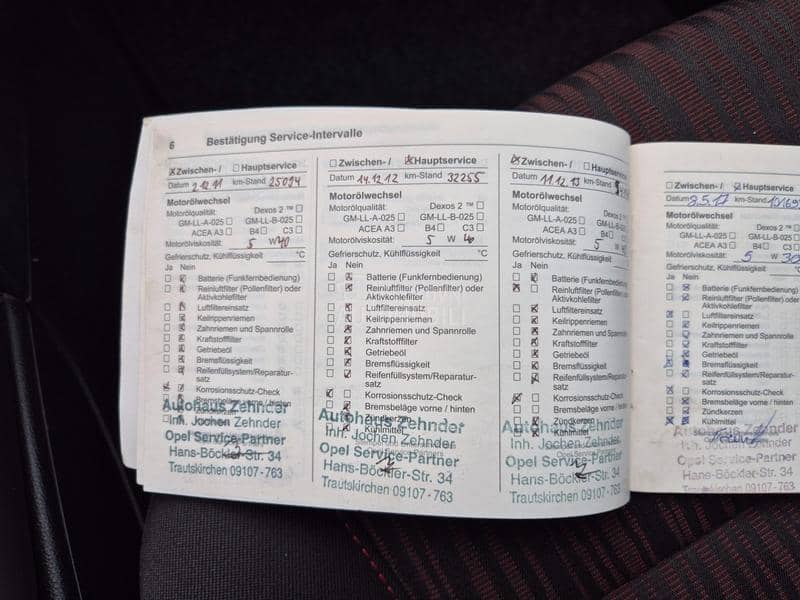 6 Bestätigung Service-Intervalle
Zwischen- / Hauptservice
Datum 2.12.11 km-Stand 25094
Motorölwechsel
Motorölqualität: Dexos 2 ™
GM-LL-A-025 GM-LL-B-025
ACEA A3 B4 C3
Motorölviskosität: 5 W 40
Gefrierschutz, Kühlflüssigkeit °C
Ja Nein
Batterie (Funkfernbedienung)
Reinluftfilter (Pollenfilter) oder
Aktivkohlefilter
Luftfiltereinsatz
Keilrippenriemen
Zahnriemen und Spannrolle
Kraftstofffilter
Getriebeöl
Bremsflüssigkeit
Reifenfüllsystem/Reparatur-
satz
Korrosionsschutz-Check
Autohaus Zehnder
Inh. Jochen Zehnder
Opel Service-Partner
Hans-Böckler-Str. 34
Trautskirchen 09107-763
Zwischen- / Hauptservice
Datum 14.12.12 km-Stand 32255
Motorölwechsel
Motorölqualität: Dexos 2 ™
GM-LL-A-025 GM-LL-B-025
ACEA A3 B4 C3
Motorölviskosität: 5 W 40
Gefrierschutz, Kühlflüssigkeit °C
Ja Nein
Batterie (Funkfernbedienung)
Reinluftfilter (Pollenfilter) oder
Aktivkohlefilter
Luftfiltereinsatz
Keilrippenriemen
Zahnriemen und Spannrolle
Kraftstofffilter
Getriebeöl
Bremsflüssigkeit
Reifenfüllsystem/Reparatur-
satz
Korrosionsschutz-Check
Bremsbeläge vorne / hinten
Zündkerzen
Kühlmittel
Autohaus Zehnder
Inh. Jochen Zehnder
Opel Service-Partner
Hans-Böckler-Str. 34
Trautskirchen 09107-763
Zwischen- / Hauptservice
Datum 11.12.13 km-Stand
Motorölwechsel
Motorölqualität: Dexos 2 ™
GM-LL-A-025 GM-LL-B-025
ACEA A3 B4 C3
Motorölviskosität: 5 W
Gefrierschutz, Kühlflüssigkeit
Ja Nein
Batterie (Funkfernbedienung)
Reinluftfilter (Pollenfilter) oder
Aktivkohlefilter
Luftfiltereinsatz
Keilrippenriemen
Zahnriemen und Spannrolle
Kraftstofffilter
Getriebeöl
Bremsflüssigkeit
Reifenfüllsystem/Reparatur-
satz
Korrosionsschutz-Check
Bremsbeläge vorne / hinten
Zündkerzen
Kühlmittel
Autohaus Zehnder
Inh. Jochen Zehnder
Opel Service-Partner
Hans-Böckler-Str. 34
Trautskirchen 09107-763
Zwischen- / Hauptservice
Datum km-Stand
Motorölwechsel
Motorölqualität: Dexos 2 ™
GM-LL-A-025 GM-LL-B-025
ACEA A3 B4 C3
Motorölviskosität: 5 W 30
Gefrierschutz, Kühlflüssigkeit
Ja Nein
Batterie (Funkfernbedienung)
Reinluftfilter (Pollenfilter) oder
Aktivkohlefilter
Luftfiltereinsatz
Keilrippenriemen
Zahnriemen und Spannrolle
Kraftstofffilter
Getriebeöl
Bremsflüssigkeit
Reifenfüllsystem/Reparatur-
satz
Korrosionsschutz-Check
Bremsbeläge vorne / hinten
Zündkerzen
Kühlmittel
Autohaus Zehnder
Inh. Jochen Zehnder
Opel Service-Partner
Hans-Böckler-Str. 34
Trautskirchen 09107-763